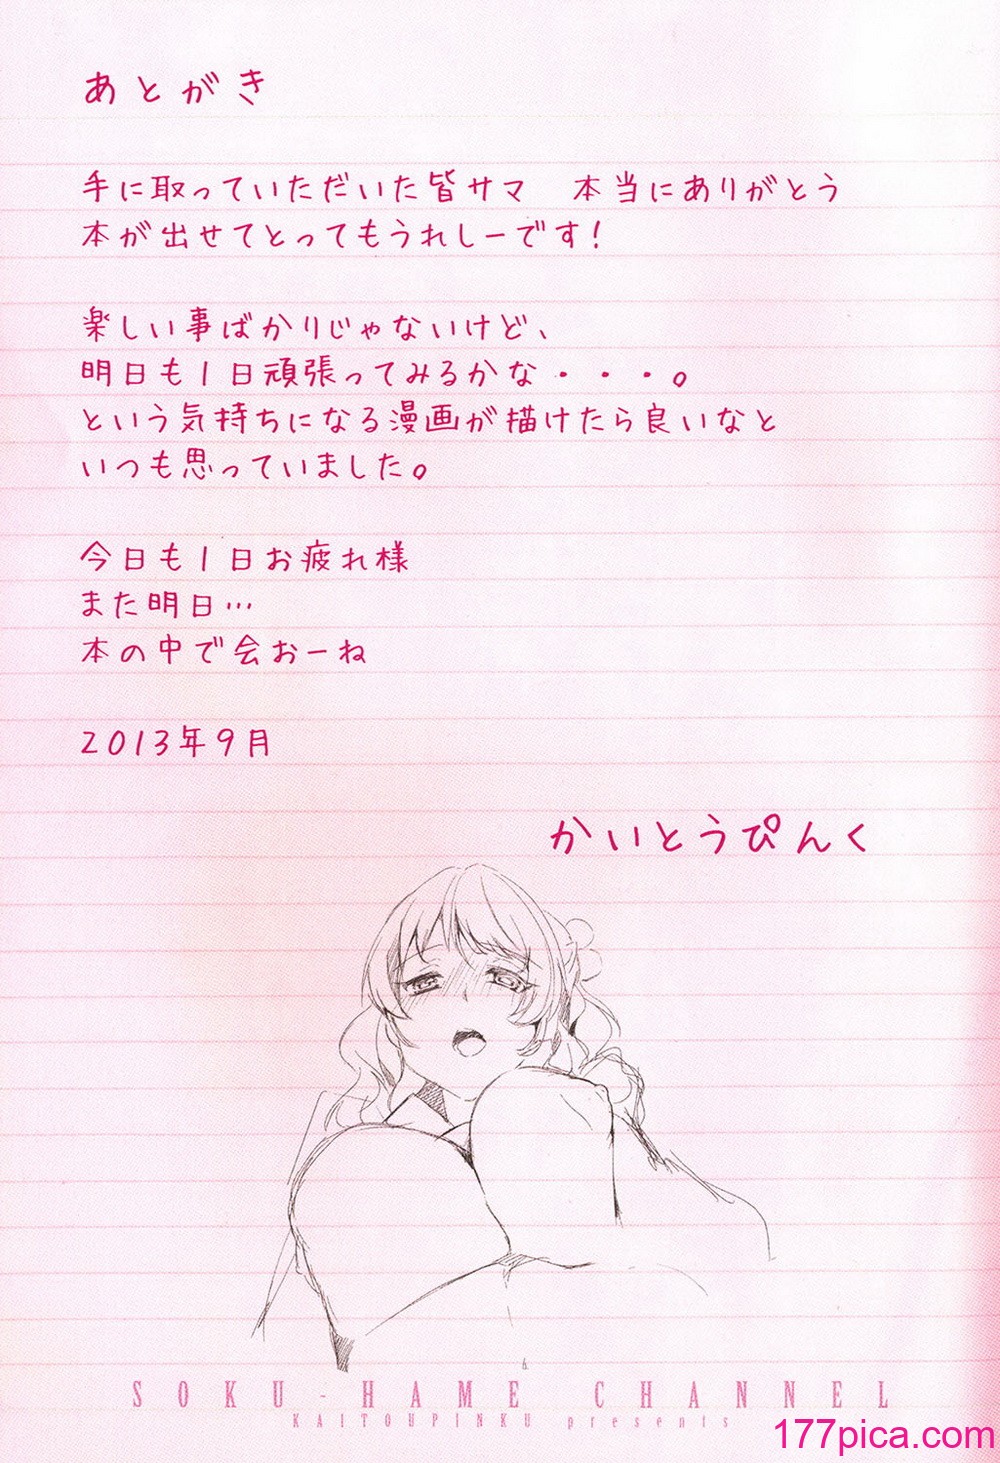 あとがき
手に取っていただいた皆サマ　本当にありがとう
本が出せてとってもうれしーです！
楽しい事ばかりじゃないけど、
明日も1日頑張ってみるかな・・・。
という気持ちになる漫画が描けたら良いなと
いつも思っていました。
今日も1日お疲れ様
また明日…
本の中で会おーね
2013年9月
かいとうぴんく
SOKU-HAME CHANNEL
KAITOUPINKU presents
177pica.com